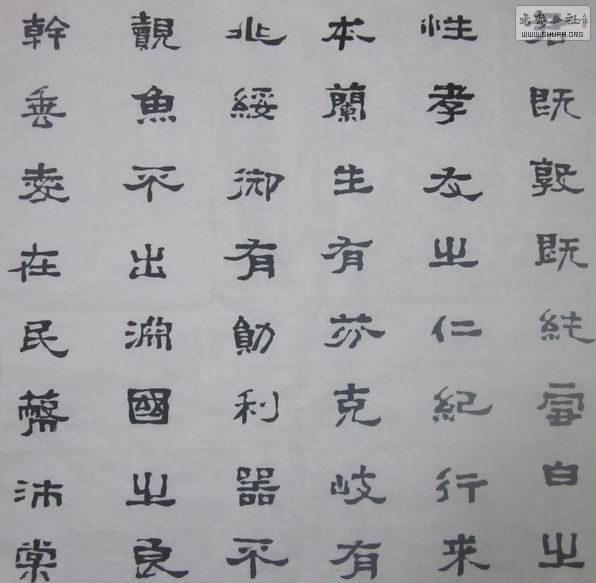 既敦既純雪白之
性孝友之仁紀行來
本蘭生有芬克岐有
兆綏御有勛利器不
覿魚不出淵國之良
幹垂愛在民蔽沛棠
WWW.SHUFA.ORG